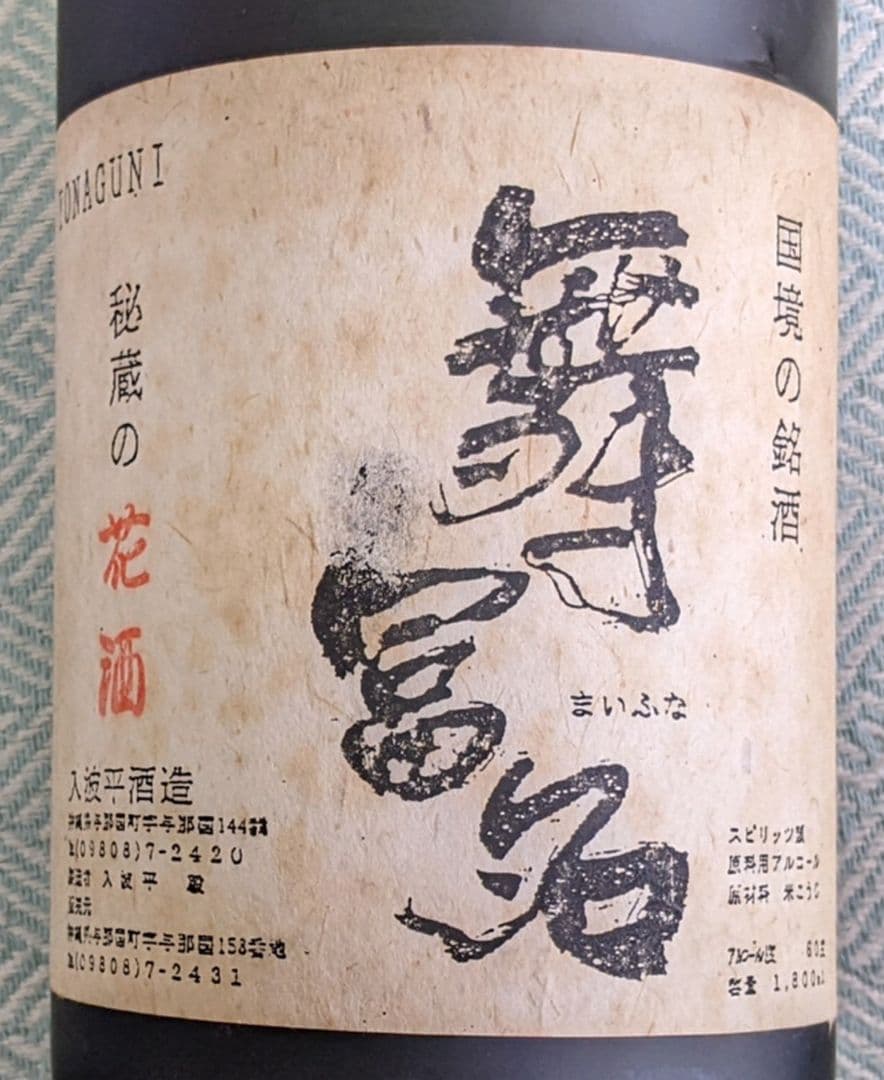 国境の銘酒
舞富名
まいふな
YONAGUNI
秘蔵の花酒
入波平酒造
沖縄県与那国町字与那国144番地
℡(09808)7-2420
製造者 入波平 
販売元
沖縄県与那国町字与那国158番地
℡(09808)7-2431
スピリッツ類
原料用アルコール
原材料 米こうじ
アルコール分 60度
容量 1,800ml